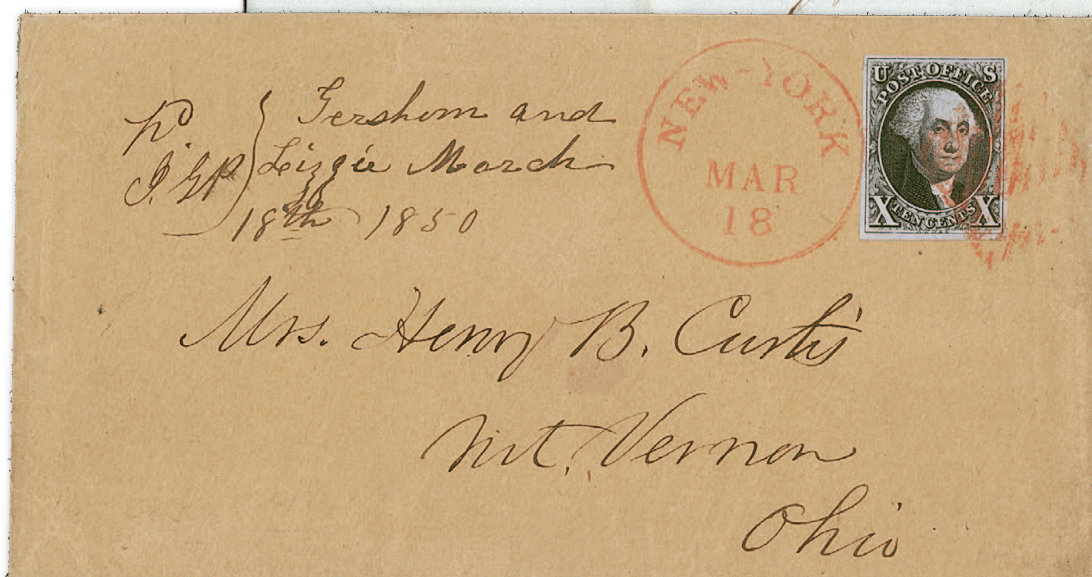 Gershom and
Lizzie March
18th 1850
NEW-YORK
MAR
18
U S
POST OFFICE
X TEN CENTS X
Mrs. Henry B. Curtis
Mt. Vernon
Ohio